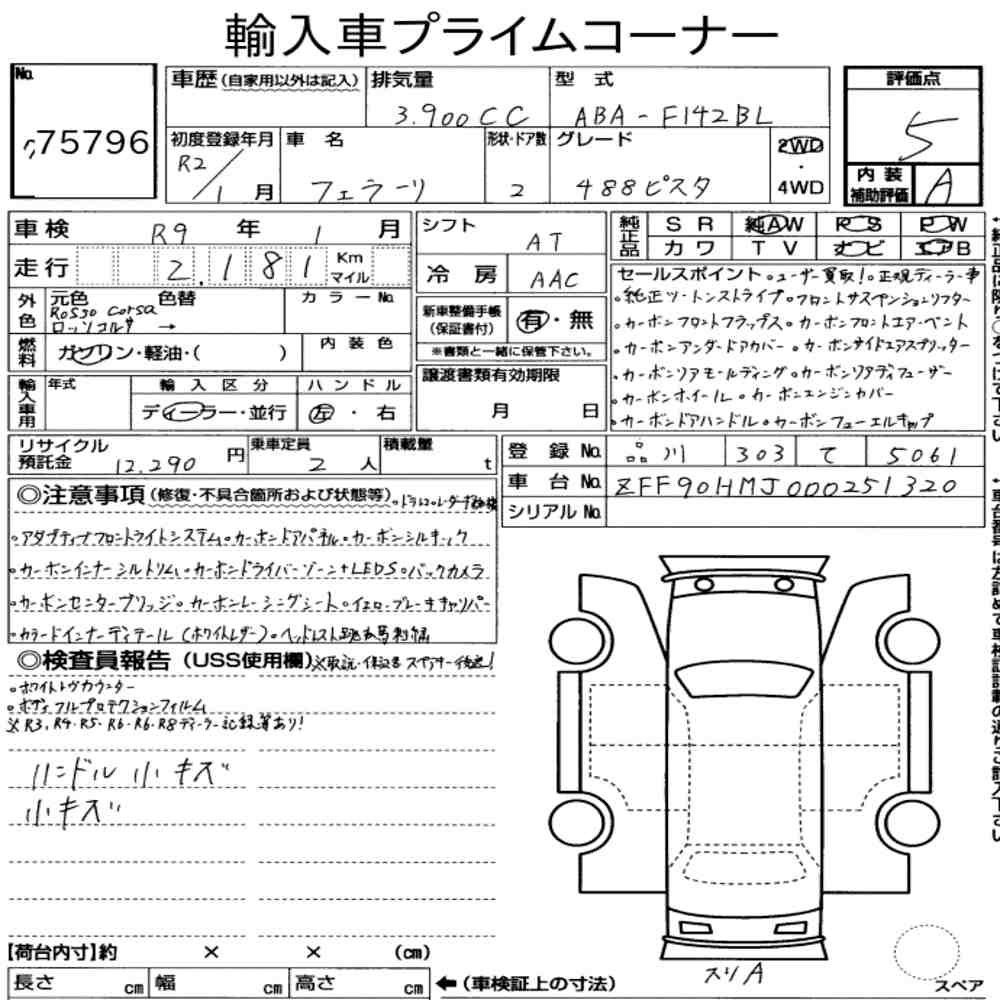 輸入車プライムコーナー
No.
75796
車歴(自家用以外は記入)
排気量
3.900CC
型式
ABA-F142BL
評価点
5
初度登録年月
R2/1月
車名
フェラーリ
形状・ドア数
2
グレード
488ピスタ
2WD
・
4WD
内装
補助評価
A
車検 R9年 1月
走行 2.181 Km
マイル
シフト
AT
冷房
AAC
純正品
SR 純AW PS PW
カワ TV ナビ エアB
外色
元色 色替
Rosso corsa
ロッソコルサ →
カラーNo.
燃料
ガソリン・軽油・( )
内装色
新車整備手帳
(保証書付)
有・無
※書類と一緒に保管下さい。
セールスポイント 。ユーザー買取!。正規ディーラー車
。純正ツートンストライプ。フロントサスペンションリフター
。カーボンフロントフラップス。カーボンフロントエアーベント
。カーボンアンダードアカバー。カーボンサイドエアスプリッター
。カーボンリアモールディング。カーボンリアディフューザー
。カーボンホイール。カーボンエンジンカバー
。カーボンドアハンドル。カーボンフューエルキャップ
輸入車用
年式
輸入区分
ディーラー・並行
ハンドル
左・右
譲渡書類有効期限
月 日
リサイクル
預託金
12.290円
乗車定員
2人
積載量
t
登録No. 品川 303 て 5061
車台No. ZFF90HMJ000251320
シリアルNo.
◎注意事項(修復・不具合箇所および状態等)
。アダプティブフロントライトシステム。カーボンドアパネル。カーボンシルキック
。カーボンインナーシルトリム。カーボンドライバーゾーン+LEDS。バックカメラ
。カーボンセンターブリッジ。カーボンレーシングシート。イエローブレーキキャリパー
。カラードインナーディテール(ホワイトレザー)。ヘッドレスト跳ね馬刺繍
◎検査員報告(USS使用欄)※取説・保証書スペアキー後送!
。ホワイトレヴカウンター
。ボディフルプロテクションフィルム
※R3.R4.R5.R6.R6.R8ディーラー記録簿あり!
ハンドル 小キズ
小キズ
スリA
スペア
【荷台内寸】約 × × (cm)
長さ cm 幅 cm 高さ cm
←(車検証上の寸法)